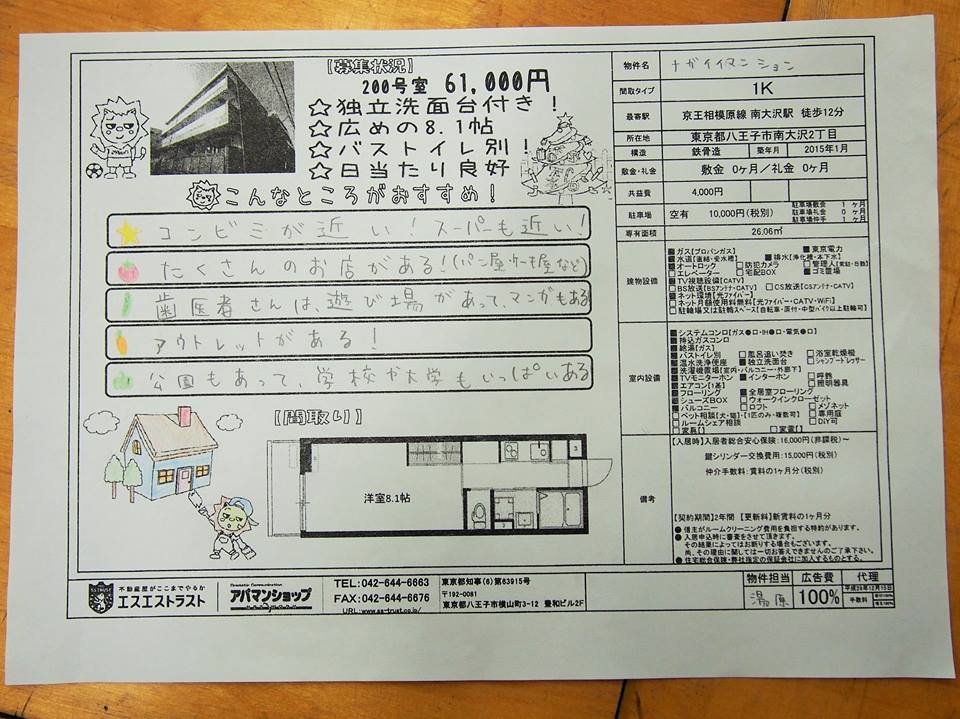 【募集状況】
200号室 61,000円
☆独立洗面台付き！
☆広めの8.1帖
☆バストイレ別！
☆日当たり良好
こんなところがおすすめ！
コンビニが近い！スーパーも近い！
たくさんのお店がある！(パン屋・ケーキ屋など)
歯医者さんは、遊び場があって、マンガもある
アウトレットがある！
公園もあって、学校や大学もいっぱいある
【間取り】
洋室8.1帖
物件名 ナガイイマンション
間取タイプ 1K
最寄駅 京王相模原線 南大沢駅 徒歩12分
所在地 東京都八王子市南大沢2丁目
構造 鉄骨造 築年月 2015年1月
敷金・礼金 敷金 0ヶ月／礼金 0ヶ月
共益費 4,000円
駐車場 空有 10,000円(税別) 駐車場敷金 1 ヶ月
駐車場礼金 0 ヶ月
駐車場仲手 1 ヶ月
専有面積 26.06㎡
建物設備
■ガス【プロパンガス】 ■東京電力
■水道【直結・受水槽】 ■排水【浄化槽・本下水】
■オートロック □防犯カメラ □管理人【常駐・日勤】
□エレベーター □宅配BOX ■ゴミ置場
■TV視聴設備【CATV】
□BS放送【BSアンテナ・CATV】 □CS放送【CSアンテナ・CATV】
■ネット環境【光ファイバー】
□ネット月額使用料無料【光ファイバー・CATV・WiFi】
□駐輪場又は駐輪スペース【自転車・原付・中型バイク以上駐輪可】
室内設備
■システムコンロ【ガス●口・IH●口・電気●口】
■持込ガスコンロ
■給湯【ガス】
■バストイレ別 □風呂追い焚き □浴室乾燥機
■温水洗浄便座 ■独立洗面台 □シャンプードレッサー
■洗濯機置場【室内・バルコニー・外廊下】
■TVモニターホン ■インターホン □呼鈴
■エアコン【1基】 □照明器具
■フローリング ■全居室フローリング
■シューズBOX □ウォークインクローゼット
■バルコニー □ロフト □メゾネット
□ペット相談【犬・猫】・【1匹のみ・複数可】 □専用庭
□ルームシェア相談 □DIY可
□家具【】 □家電【】
備考
【入居時】入居者総合安心保険：16,000円(非課税)～
鍵シリンダー交換費用：15,000円(税別)
仲介手数料：賃料の1ヶ月分(税別)
【契約期間】2年間 【更新料】新賃料の1ヶ月分
●借主がルームクリーニング費用を負担する特約があります。
●入居申込時に審査をさせて頂きます。
その結果によってはお断りする場合もございます。
尚、その理由に関しては一切お答えできませんのでご了承下さい。
●住宅総合保険・弊社指定の保証会社に加入するものとする。
SSTRUST
不動産屋がここまでやるか
エスエストラスト
Dramatic Communication
アパマンショップ
TEL:042-644-6663
FAX:042-644-6676
URL:www.ss-trust.co.jp/
東京都知事(6)第63915号
〒192-0081
東京都八王子市横山町3-12 豊和ビル2F
物件担当 広告費 代理
湯原 100% 平成26年12月13日
手数料